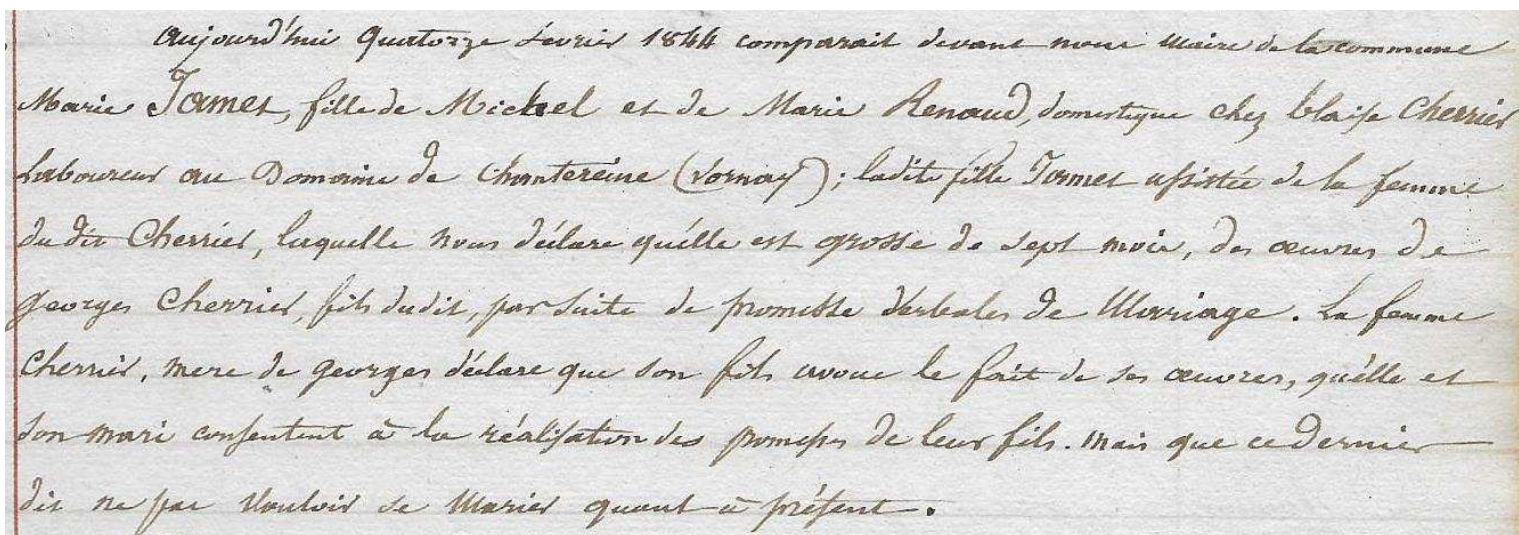 aujourd'hui quatorze février 1844 comparait devant nous maire de la commune
Marie Jamet, fille de Michel et de Marie Renaud, domestique chez blaise Cherrier
Laboureur au Domaine de Chantereine (Vornay); ladite fille Jamet assistée de la femme
du dit Cherrier, laquelle nous déclare qu'élle est grosse de sept mois, des œuvres de
georges Cherrier, fils dudit, par suite de promesse verbales de Mariage. La femme
Cherrier, mere de georges déclare que son fils avoue le fait de ses œuvres, qu'élle et
son mari consentent à la réalisation des promesses de leur fils. mais que ce dernier
dit ne pas Vouloir se Marier quant à présent.